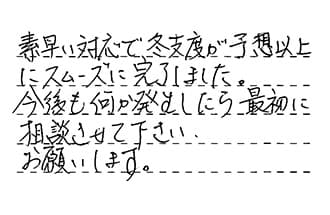 素早い対応で冬支度が予想以上
にスムーズに完了しました。
今後も何か発生したら最初に
相談させて下さい.
お願いします。